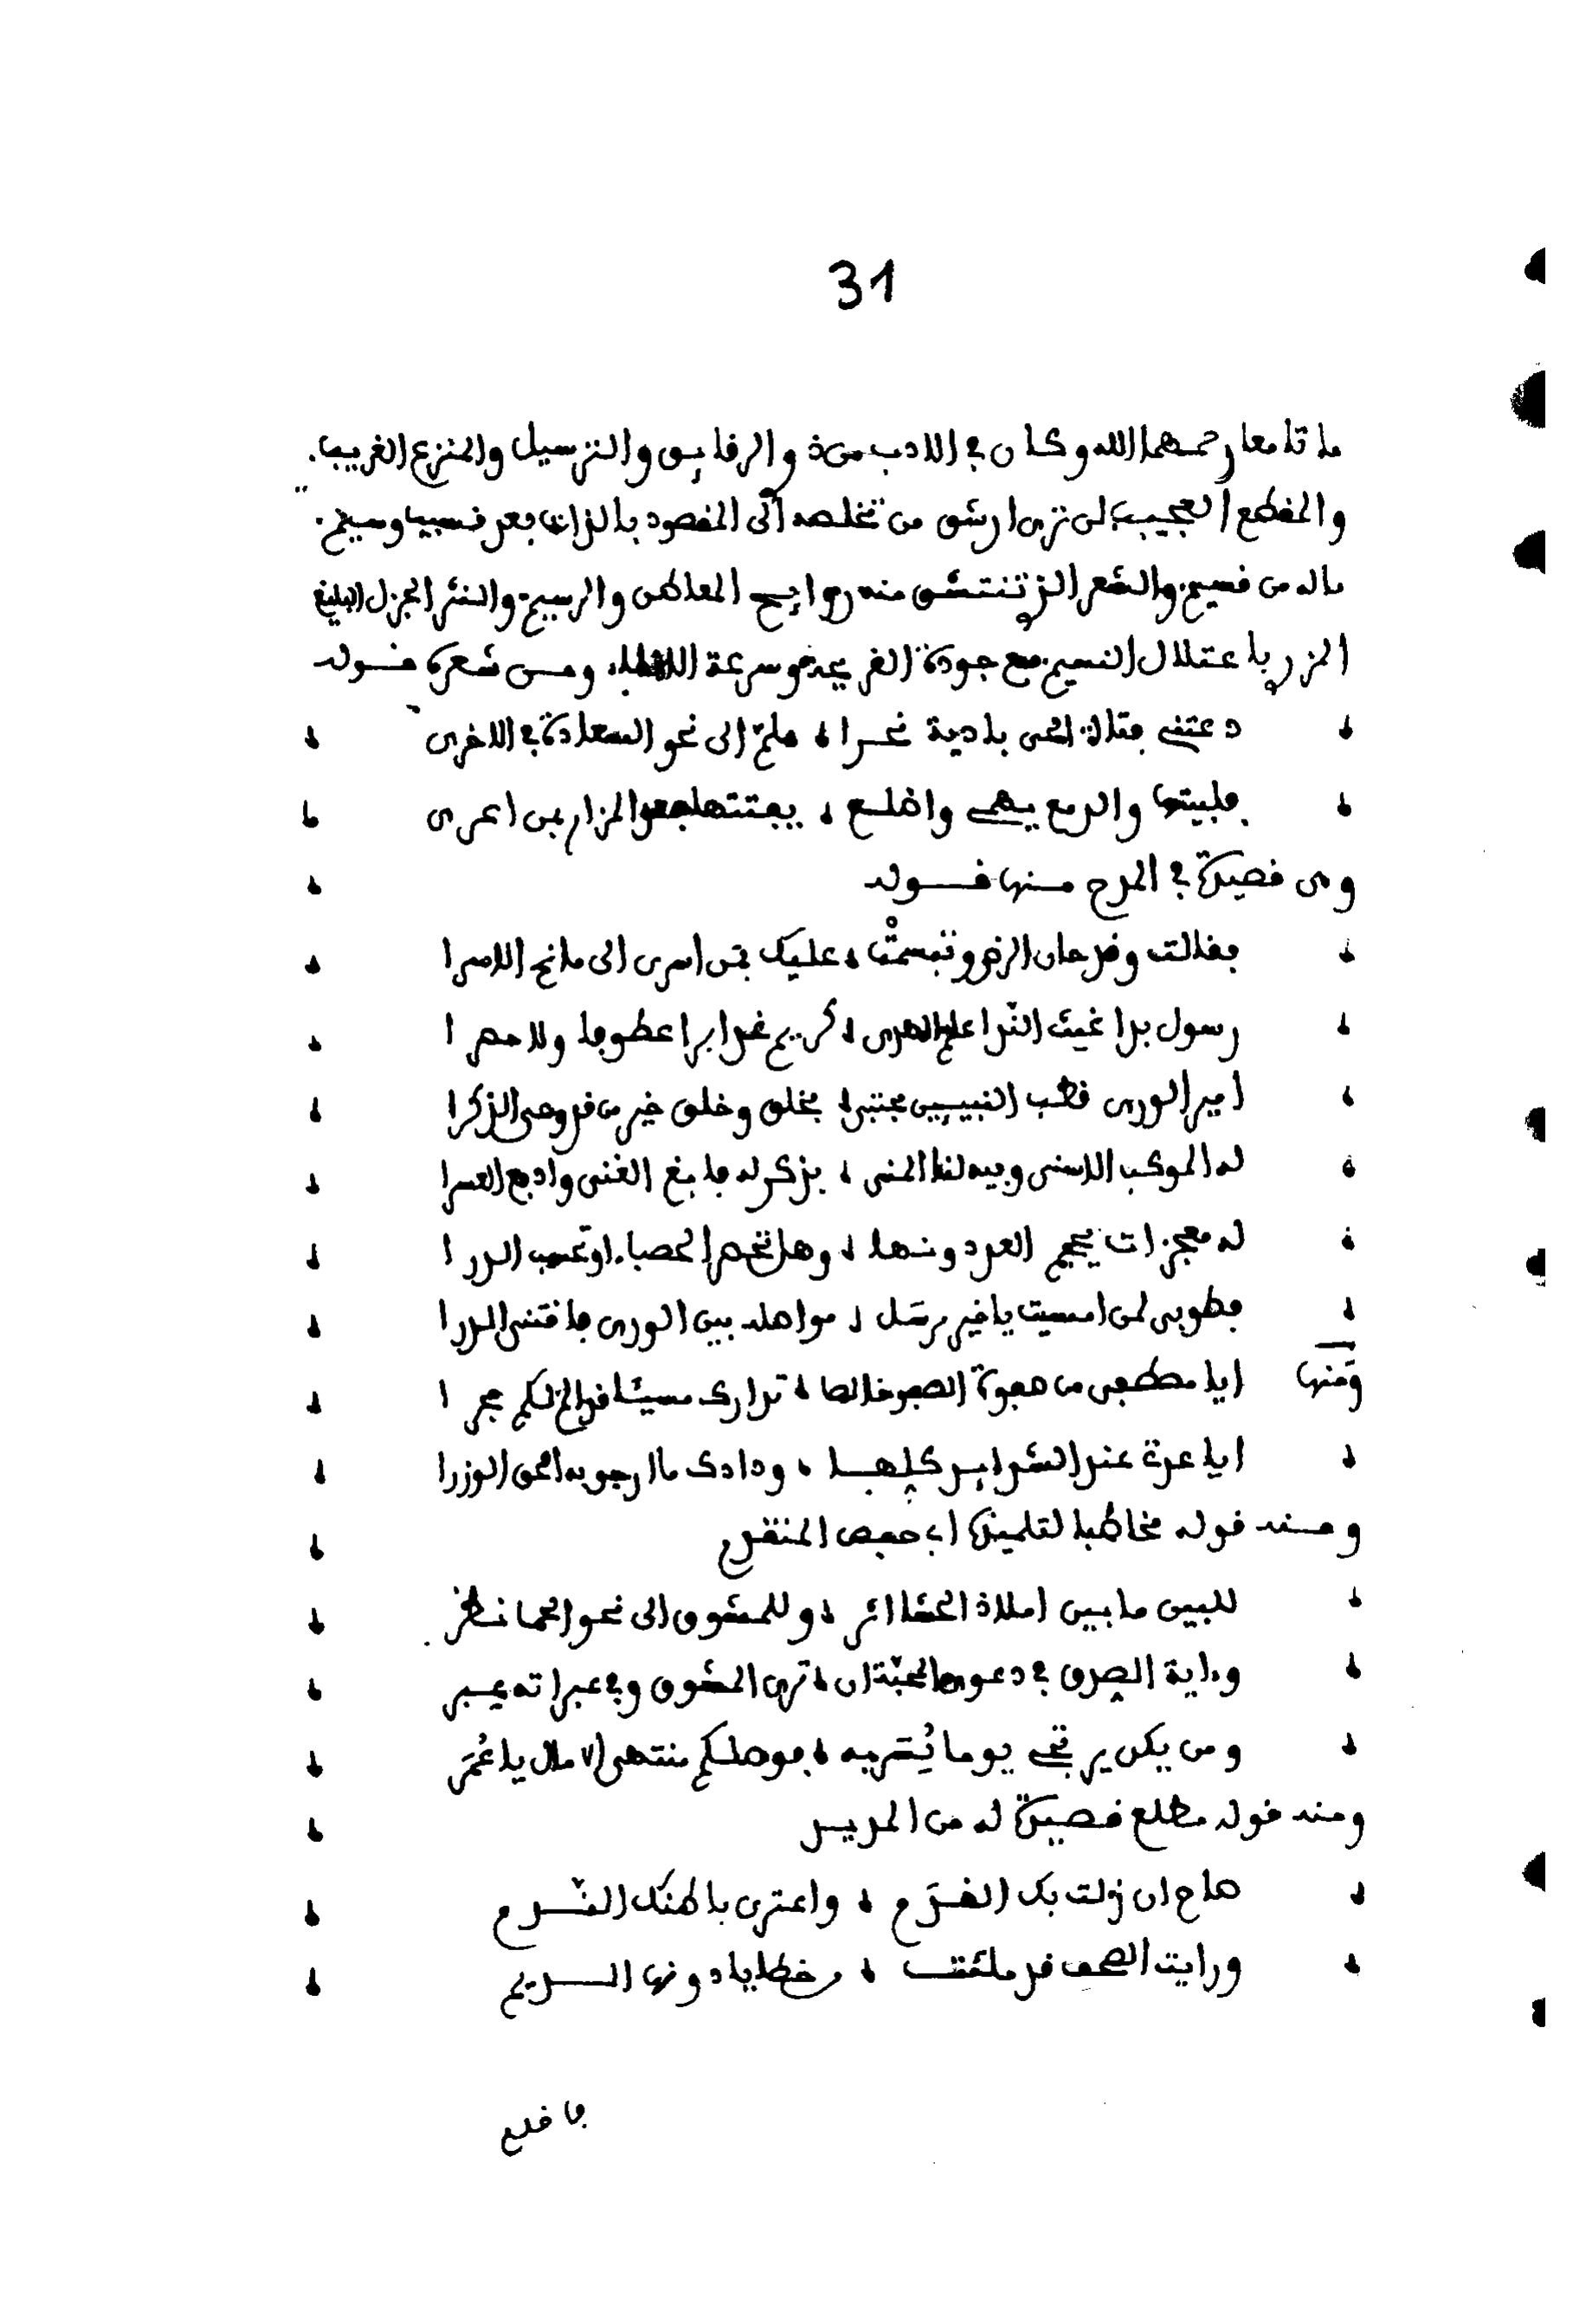 31
ماتا معا رحمهما الله وكان في الادب والرقايق والترسيل والمنزع الغريب.
والمقطع العجيب لن ترى ارشق من تخلصه الى المقصود بالذات بعد نسيب وسيم.
ماله من قسيم. والشعر الذي تنتشق منه روايح المعاطس والنثر الجزل البليغ
المزر باعتلال النسيم. مع جودة القريحة وسرعة ومن شعره قوله
دعتني فتاة الحي بادية نحرا هلم الى نحو السعادة في الاخرى
فلبيتها والدمع يهمي واضلع المزار بمن اعرى
ومن قصيدة في المدح منها قوله
فقالت وقد حان الرضى وتبسمت عليك بمن اسرى الى مانح الاسرا
رسول بدا غيث الندا علم الهدى كريم غدا برا عطوفا ولا حصرا
امير الورى قطب النبيين مجتبى بخلق وخلق خير من قد وعى الذكرا
له الموكب الاسنى وفيه لنا المنى بذكر له فابغ الغنى وادفع العسرا
له معجزات يحجم العد دونها وهل تحصر الحصباء او تحسب الدرا
فطوبى لمن امسيت يا خير مرسل مواهله بين الورى فاقتنى الدرا
ومنها ايا مصطفى من صفوة الصفو خالصا تدارك مسيئا
ايا عدة عند الشدايد كلها ودادك ما ارجو به امحق الوزرا
ومنه قوله مخاطبا لتلميذه ابي حفص المتقدم
للبين ما بين املاذ الحشا اثر وللمشوق الى نحو الحما نظر
وءاية الصدق في دعوى المحبة ان ترى المشوق وفي عبراته عبر
ومن يكن يرتجي يوما يسر به فوصلكم منتهى الامال يا عمر
ومنه قوله مطلع قصيدة له من المديد
صاح ان زلت بك القدم واعترى باطنك الندم
ورايت الصحف قد ملئت خطايا دونها الديم
فاقلع